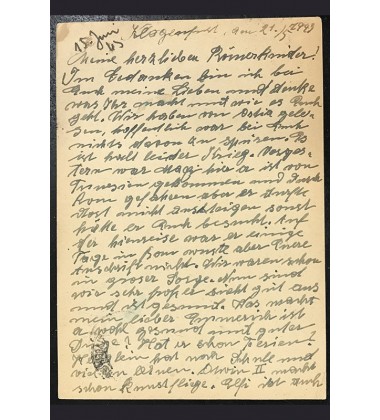 15. Juni 43
Klagenfurt, am 21. 1943
Meine herzlieben Römerkinder!
Im Gedanken bin ich bei
Euch meine Lieben und denke
was Ihr macht und wie es Euch
geht. Wir haben von Ostia gele-
sen, hoffentlich war bei Euch
nichts davon zu spüren. Es
ist halt leider Krieg. Vorges-
tern war hier er ist von
gekommen und durch
Rom gefahren aber er durfte
dort nicht aussteigen sonst
hätte er Euch besucht. Auf
der hinreise war er einige
Tage in Rom wußte aber Eure
Anschrift nicht. Wir waren schon
in groser Sorge. Nun sind
wir sehr froh er sieht gut aus
und ist gesund. Was macht
mein lieber Emmerich ist
er wohl gesund und guter
Dinge? Hat er schon Ferien?
hat noch Schule und
viel zu lernen. Erwin II macht
schon Kunstfliege. Elfi ist auch